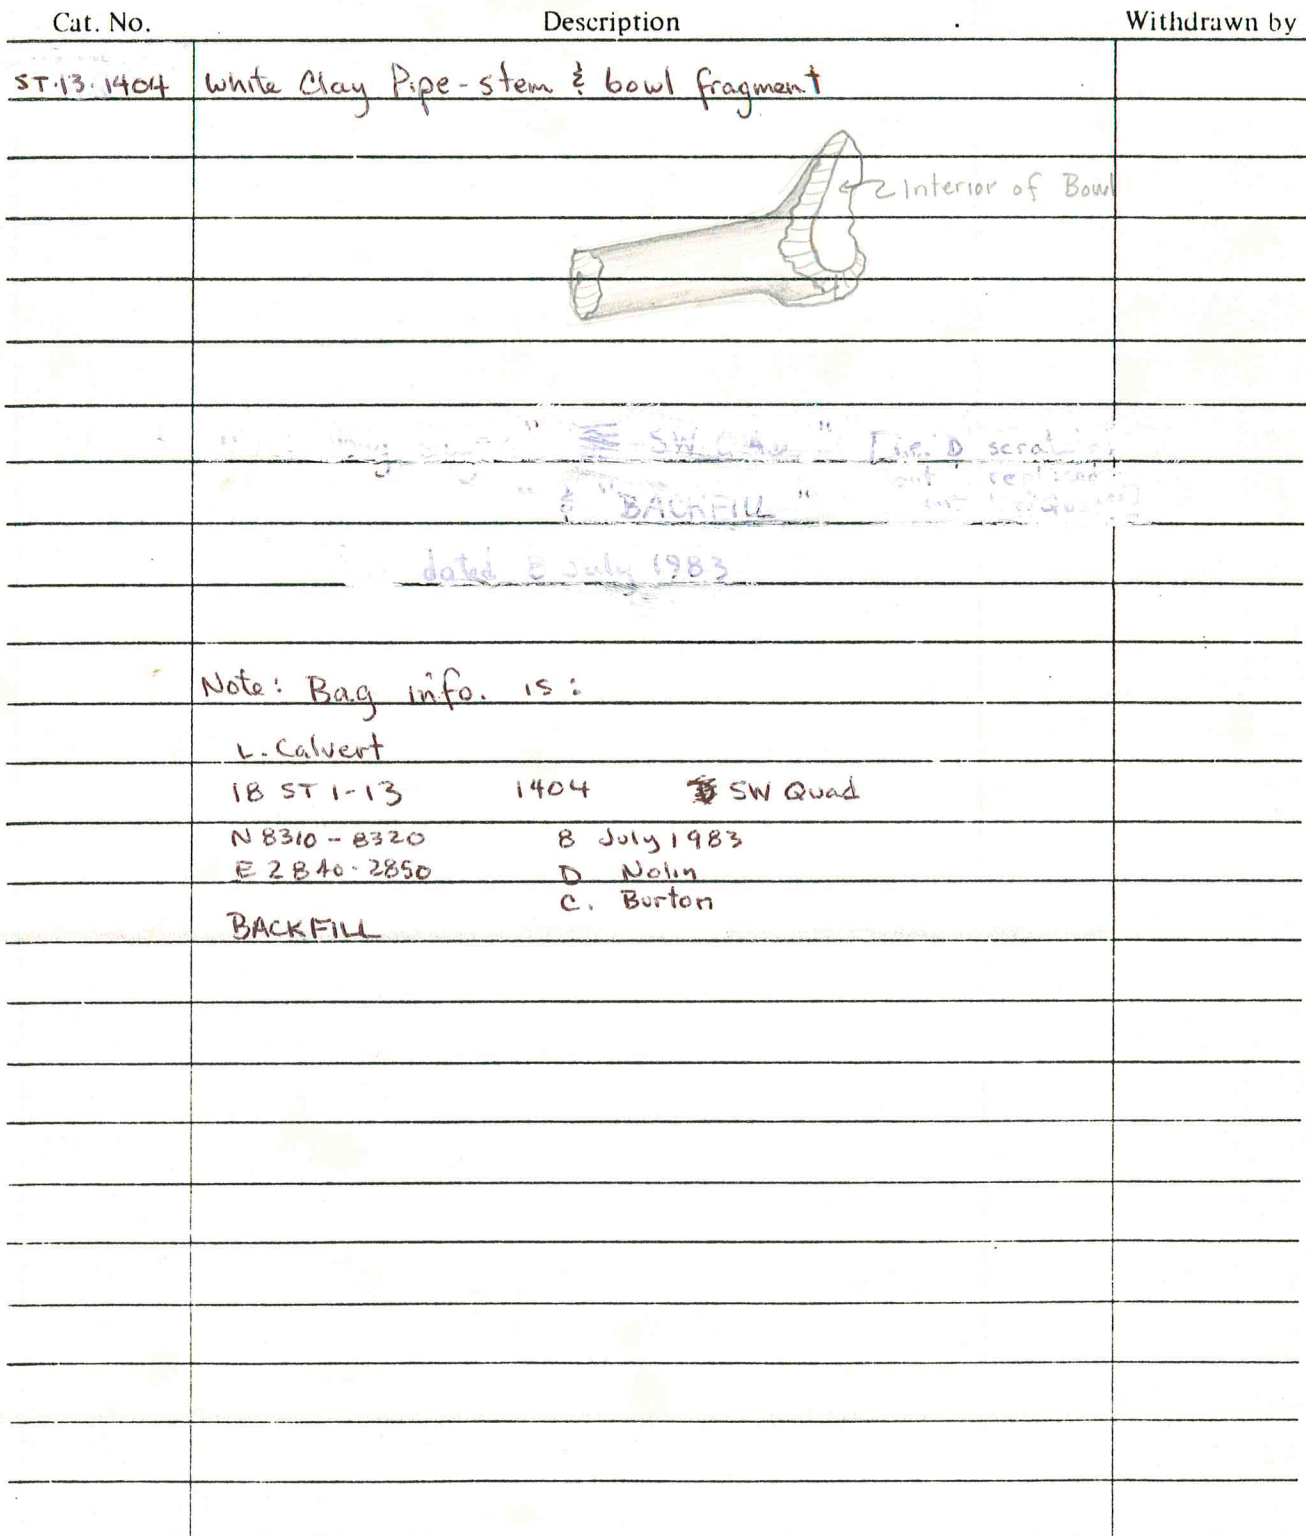 Cat. No. Description Withdrawn by
ST.13.1404 White Clay Pipe-stem & bowl fragment
Interior of Bowl
" SW " [i.e. D
out
& "BACKFILL"
dated 8 July 1983
Note: Bag info. is:
L. Calvert
18 ST 1-13 1404 SW Quad
N 8310 - 8320 8 July 1983
E 2840-2850 D Nolin
C. Burton
BACKFILL